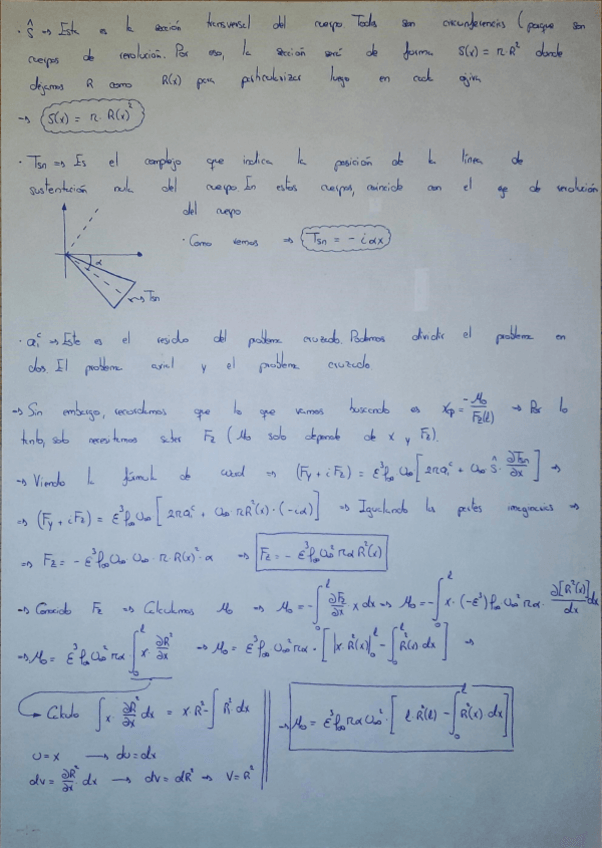 · Ŝ → Esta es la sección transversal del cuerpo. Todas son circunferencias (porque son
cuerpos de revolución. Por eso, la sección será de forma S(x) = π·R² donde
dejamos R como R(x) para particularizar luego en cada ojiva
→ S(x) = π·R(x)²
· Tsn ⇒ Es el complejo que indica la posición de la línea de
sustentación nula del cuerpo. En estos cuerpos, coincide con el eje de revolución
del cuerpo
· Como vemos ⇒ Tsn = -iαx
α
Tsn
· a₁ᶜ → Este es el residuo del problema cruzado. Podemos dividir el problema en
dos. El problema axial y el problema cruzado
→ Sin embargo, recordemos que lo que vamos buscando es Xcp = -M₀/Fz(l) → Por lo
tanto, solo necesitamos saber Fz (M₀ solo depende de x y Fz).
→ Viendo la fórmula de Ward ⇒ (Fy + iFz) = ε³ρ∞U∞[2πa₁ᶜ + U∞ Ŝ · ∂Tsn/∂x] ⇒
⇒ (Fy + iFz) = ε³ρ∞U∞[2πa₁ᶜ + U∞ πR²(x)·(-iα)] ⇒ Igualando las partes imaginarias ⇒
⇒ Fz = -ε³ρ∞U∞ U∞·π·R(x)²·α ⇒ Fz = -ε³ρ∞U∞²πα R²(x)
→ Conocido Fz ⇒ Calculamos M₀ ⇒ M₀ = -∫₀ˡ ∂Fz/∂x x dx → M₀ = -∫₀ˡ x·(-ε³)ρ∞U∞²πα · ∂[R²(x)]/dx dx
→ M₀ = ε³ρ∞U∞²πα ∫₀ˡ x·∂R²/∂x → M₀ = ε³ρ∞U∞²πα·[|x·R²(x)|₀ˡ - ∫₀ˡ R²(x) dx] ⇒
→ Cálculo ∫x·∂R²/∂x dx = x·R² - ∫R² dx
u = x → du = dx
dv = ∂R²/∂x dx → dv = dR² → v = R²
→ M₀ = ε³ρ∞παU∞²·[l·R²(l) - ∫₀ˡ R²(x) dx]